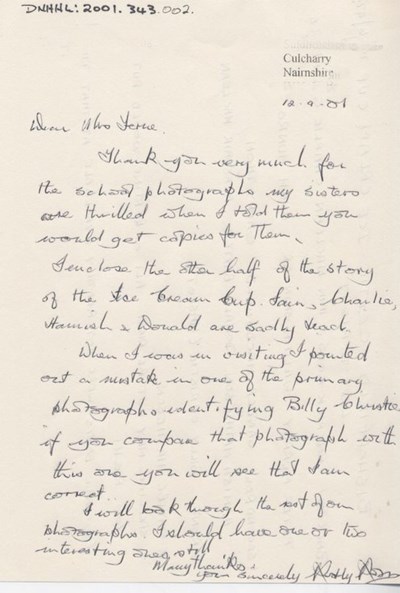 DNHHL: 2001.343.002.
Culcharry
Nairnshire
12.9.01
Dear Mrs
Thank you very much for
the school photographs my sisters
are thrilled when I told them you
would get copies for them.
I enclose the other half of the story
of the Ice Cream Cup. Iain, Charlie,
Hamish & Donald are sadly dead.
When I was in visiting I pointed
out a mistake in one of the primary
photographs identifying Billy Christie
if you compare that photograph with
this one you will see that I am
correct.
I will look through the rest of our
photographs. I should have one or two
interesting ones still
Many thanks
your sincerely